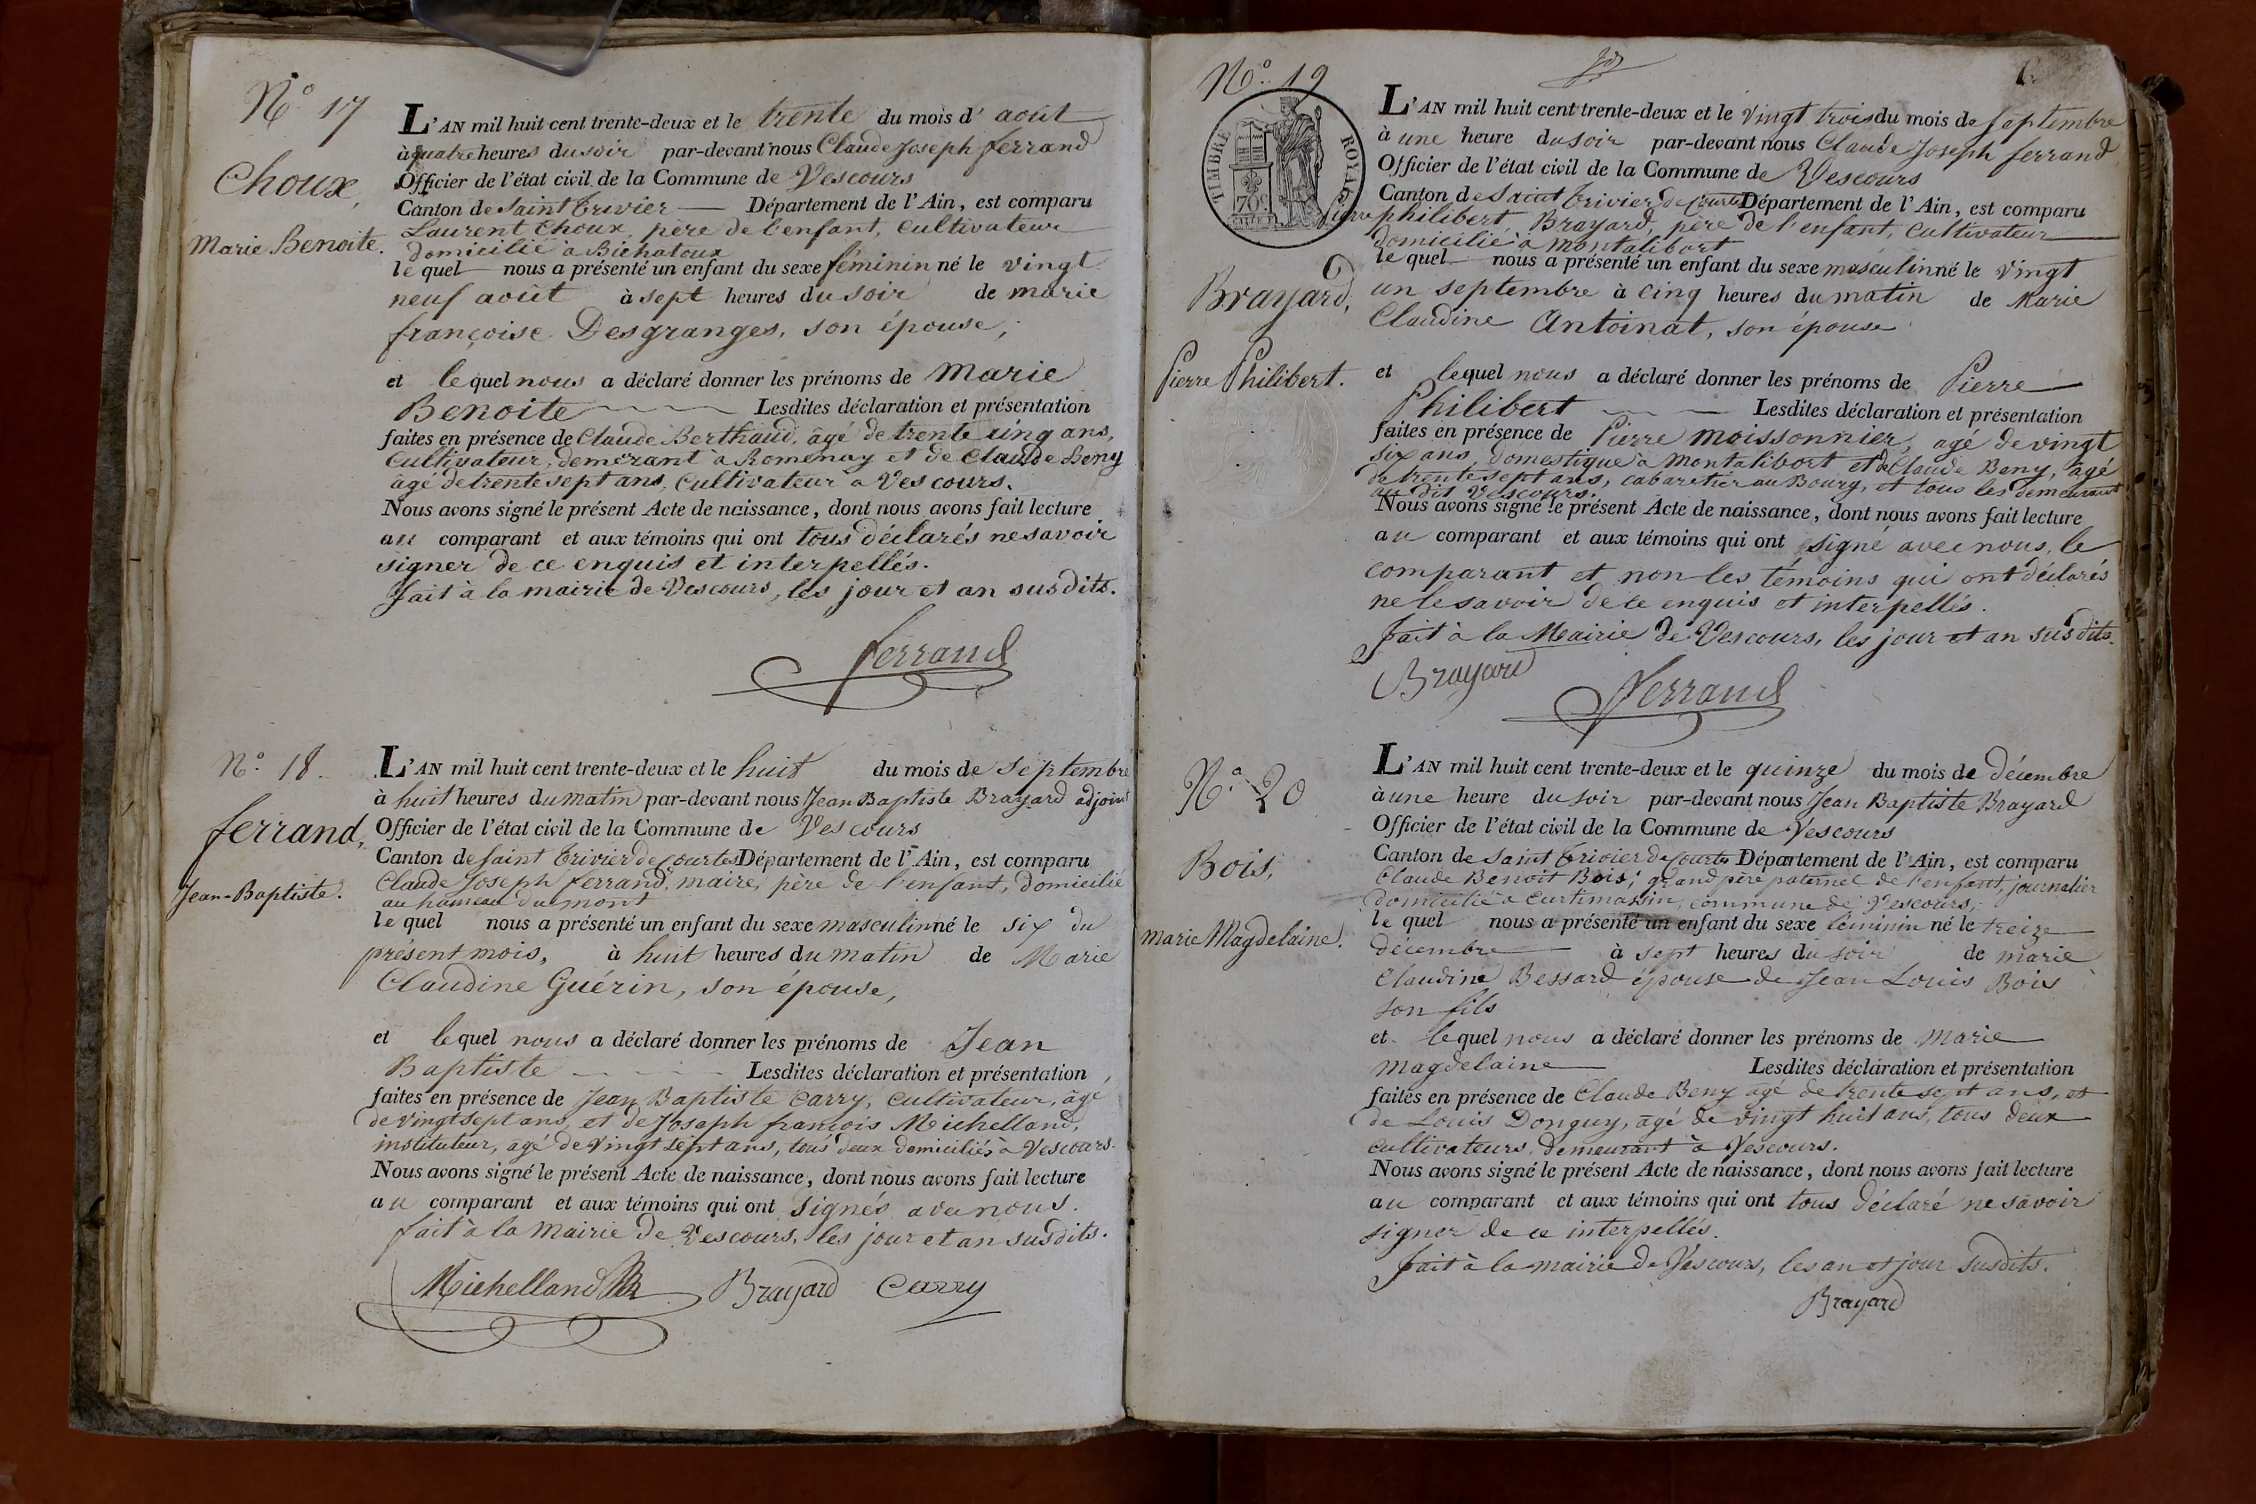 N.° 17
Choux,
Marie Benoite.
L'AN mil huit cent trente-deux et le trente du mois d'août
à quatre heures du soir par-devant nous Claude Joseph ferrand
Officier de l'état civil de la Commune de Vescours
Canton de Saint trivier — Département de l'Ain, est comparu
Laurent Choux, père de l'enfant, cultivateur
domicilié à Bichatoux
le quel nous a présenté un enfant du sexe féminin né le vingt
neuf août à sept heures du soir de marie
françoise Desgranges, son épouse,
et le quel nous a déclaré donner les prénoms de Marie
Benoite Lesdites déclaration et présentation
faites en présence de Claude Berthaud, âgé de trente cinq ans,
cultivateur, demeurant à Romenay et de Claude Beny
âgé de trente sept ans, cultivateur à Vescours.
Nous avons signé le présent Acte de naissance, dont nous avons fait lecture
au comparant et aux témoins qui ont tous déclarés ne savoir
signer de ce enquis et interpellés.
fait à la mairie de Vescours, les jour et an susdits.
ferrand
N.° 18.
ferrand,
Jean-Baptiste.
L'AN mil huit cent trente-deux et le huit du mois de septembre
à huit heures du matin par-devant nous Jean Baptiste Brayard adjoint
Officier de l'état civil de la Commune de Vescours
Canton de Saint trivier de Courtes Département de l'Ain, est comparu
Claude Joseph ferrand, maire, père de l'enfant, domicilié
au hameau du mont
le quel nous a présenté un enfant du sexe masculin né le six du
présent mois, à huit heures du matin de Marie
Claudine Guérin, son épouse,
et le quel nous a déclaré donner les prénoms de Jean
Baptiste Lesdites déclaration et présentation
faites en présence de Jean Baptiste Carry, cultivateur, âgé
de vingt sept ans, et de Joseph françois Michelland,
instituteur, âgé de vingt sept ans, tous deux domiciliés à Vescours.
Nous avons signé le présent Acte de naissance, dont nous avons fait lecture
au comparant et aux témoins qui ont signés avec nous.
fait à la Mairie de Vescours, les jour et an susdits.
Michelland Brayard Carry
N.° 19
TIMBRE ROYAL
70c
Brayard,
Pierre Philibert.
L'AN mil huit cent trente-deux et le vingt trois du mois de septembre
à une heure du soir par-devant nous Claude Joseph ferrand
Officier de l'état civil de la Commune de Vescours
Canton de Saint trivier de Courtes Département de l'Ain, est comparu
Pierre philibert Brayard, père de l'enfant, cultivateur
domicilié à Montalibort
le quel nous a présenté un enfant du sexe masculin né le vingt
un septembre à cinq heures du matin de Marie
Claudine Antoinat, son épouse
et lequel nous a déclaré donner les prénoms de Pierre
Philibert Lesdites déclaration et présentation
faites en présence de Pierre Moissonnier, âgé de vingt
six ans, domestique à Montalibort et de Claude Beny, âgé
de trente sept ans, cabaretier au Bourg, et tous les demeurant
au dit Vescours.
Nous avons signé le présent Acte de naissance, dont nous avons fait lecture
au comparant et aux témoins qui ont signé avec nous, le
comparant et non les témoins qui ont déclarés
ne le savoir de ce enquis et interpellés.
fait à la Mairie de Vescours, les jour et an susdits.
Brayard
Ferrand
N.° 20
Bois,
Marie Magdelaine.
L'AN mil huit cent trente-deux et le quinze du mois de décembre
à une heure du soir par-devant nous Jean Baptiste Brayard
Officier de l'état civil de la Commune de Vescours
Canton de Saint trivier de Courtes Département de l'Ain, est comparu
Claude Benoit Bois, grand père paternel de l'enfant, journalier
domicilié à Curtimassin, commune de Vescours,
le quel nous a présenté un enfant du sexe féminin né le treize
décembre à sept heures du soir de marie
Claudine Bessard épouse de Jean Louis Bois
son fils
et lequel nous a déclaré donner les prénoms de Marie
Magdelaine Lesdites déclaration et présentation
faites en présence de Claude Beny âgé de trente sept ans, et
de Louis Donguy, âgé de vingt huit ans, tous deux
cultivateurs, demeurant à Vescours.
Nous avons signé le présent Acte de naissance, dont nous avons fait lecture
au comparant et aux témoins qui ont tous déclaré ne savoir
signer de ce interpellés.
fait à la mairie de Vescours, les an et jour susdits.
Brayard